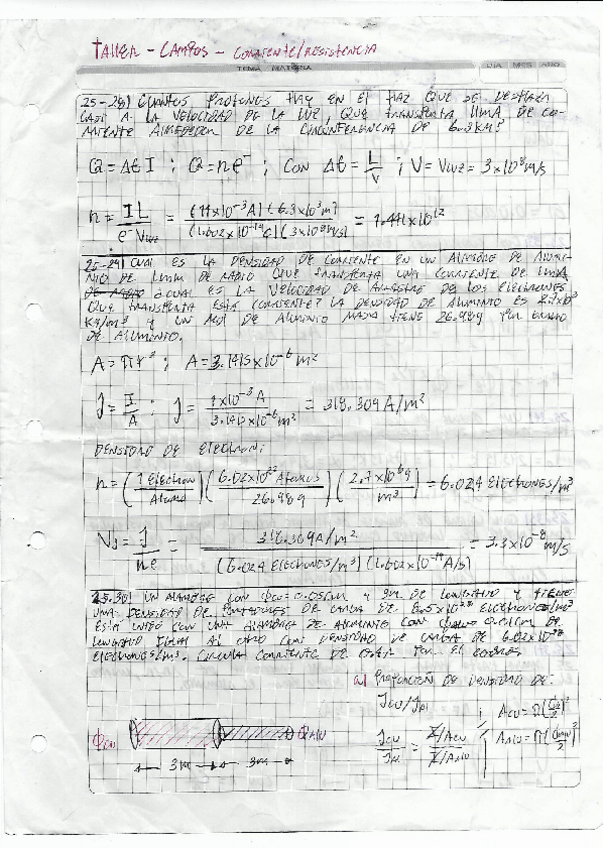 TALLER - CAMPOS - CORRIENTE/RESISTENCIA
TEMA MATERIA
DIA MES AÑO
25-28) CUANTOS PROTONES HAY EN EL HAZ QUE SE DESPLAZA
CASI A LA VELOCIDAD DE LA LUZ, QUE TRANSPORTA 11MA DE CO-
RRIENTE ALREDEDOR DE LA CIRCUNFERENCIA DE 6.3KM?
Q = Δt I ; Q = n e⁻ ; CON Δt = L/V ; V = Vluz = 3x10⁸ m/s
n = IL / e⁻ Vluz = (11x10⁻³A)(6.3x10³m) / (1.602x10⁻¹⁹C)(3x10⁸m/s) = 1.441x10¹²
25-29) CUAL ES LA DENSIDAD DE CORRIENTE EN UN ALAMBRE DE ALUMI-
NIO DE 1MM DE RADIO QUE TRANSPORTA UNA CORRIENTE DE 1MA
¿CUAL ES LA VELOCIDAD DE ARRASTRE DE LOS ELECTRONES
QUE TRANSPORTA ESTA CORRIENTE? LA DENSIDAD DE ALUMINIO ES 2.7x10³
KG/m³ y UN MOL DE ALUMINIO TIENE 26.98g
DE ALUMINIO.
A = πr² ; A = 3.1415x10⁻⁶ m²
J = I/A ; J = 1x10⁻³ A / 3.1415x10⁻⁶ m² = 318.309 A/m²
DENSIDAD DE ELECTRON:
n = (1 ELECTRON / ATOMO)(6.02x10²³ ATOMOS / 26.98g)(2.7x10⁶g / m³) = 6.024 ELECTRONES/m³
Vd = J / ne = 318.309A/m² / (6.024 ELECTRONES/m³)(1.602x10⁻¹⁹A/s) = 3.3x10⁻⁸ m/s
25.30) UN ALAMBRE CON
UNA DENSIDAD DE PORTADORES DE CARGA DE 8.5x10²⁸ ELECTRONES/m³
ESTÁ UNIDO CON UNA ALAMBRE DE ALUMINIO CON
LONGITUD IGUAL AL CON DENSIDAD DE CARGA DE 6.02x10²⁸
ELECTRONES/m³. CIRCULA CORRIENTE DE
a) PROPORCION DE DENSIDAD DE:
Jcu/Jal
Jcu/Jal = I/Acu / I/Aalu
Acu = π(Øcu/2)²
Aalu = π(Øalu/2)²
Øcu
Øalu
3m
3m